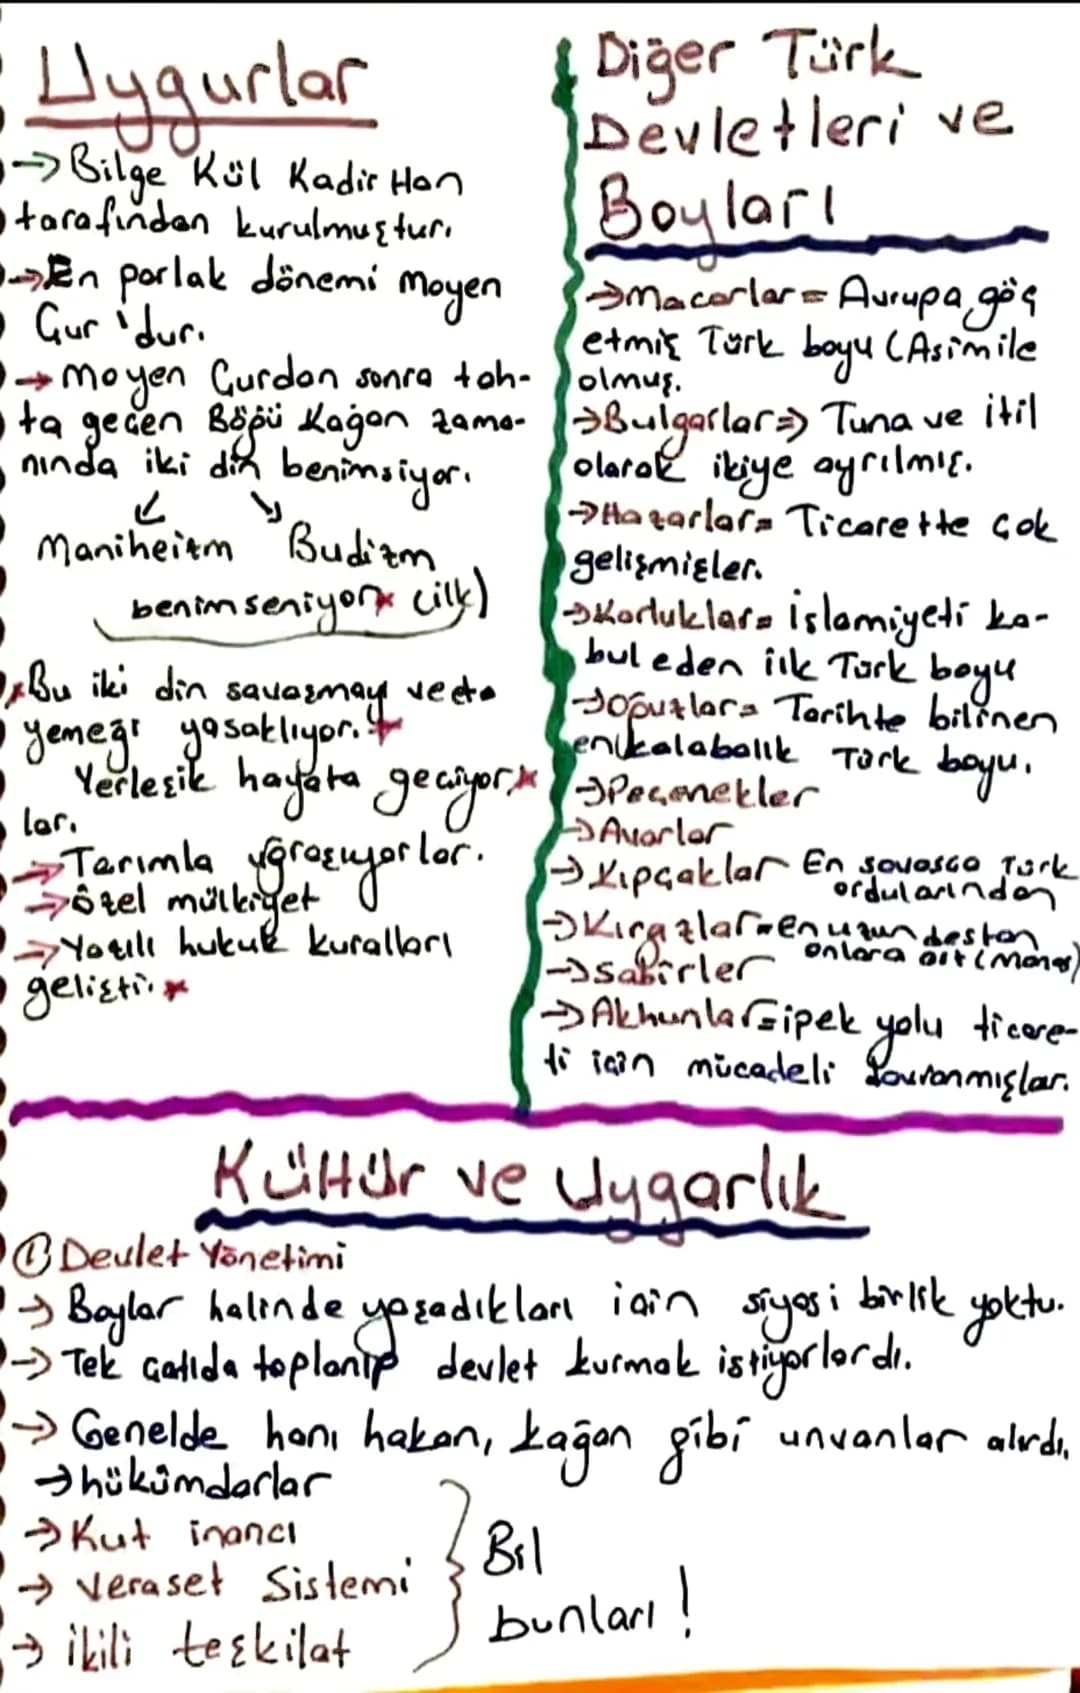 Uygurlar
→ Bilge Kül Kadir Han
tarafından kurulmuştur.
→ En parlak dönemi Moyen
Çur'dur.
→ Moyen Çurdan sonra tah-
ta geçen Böğü Kağan zama-
nında iki din benimsiyor.
Maniheizm Budizm
benimseniyor* (ilk)
*Bu iki din savaşmayı ve et
yemeği yasaklıyor.*
Yerleşik hayata geçiyor*
lar.
→ Tarımla uğraşıyorlar.
→ özel mülkiyet
→ Yazılı hukuk kuralları
gelişti.*
Diğer Türk
Devletleri ve
Boyları
→ Macarlar = Avrupa göç
etmiş Türk boyu (Asimile
olmuş.
→ Bulgarlar => Tuna ve itil
olarak ikiye ayrılmış.
→ Hazarlar = Ticarette çok
gelişmişler.
→ Karluklar = İslamiyeti ka-
bul eden ilk Türk boyu
→ Oğuzlar = Tarihte bilinen
en kalabalık Türk boyu.
→ Peçenekler
→ Avarlar
→ Kıpçaklar En savaşçı Türk
ordularından
→ Kırgızlar = en uzun destan
onlara ait (Manas)
→ Sabirler
→ Akhunlar = ipek yolu ticare-
ti için mücadeli davranmışlar.
Kültür ve Uygarlık
① Devlet Yönetimi
→ Boylar halinde yaşadıkları için siyasi birlik yoktu.
→ Tek çatıda toplanıp devlet kurmak istiyorlardı.
→ Genelde han, hakan, kağan gibi unvanlar alırdı.
→ hükümdarlar
→ Kut inancı
→ veraset Sistemi
→ ikili teşkilat
Bil
bunları!